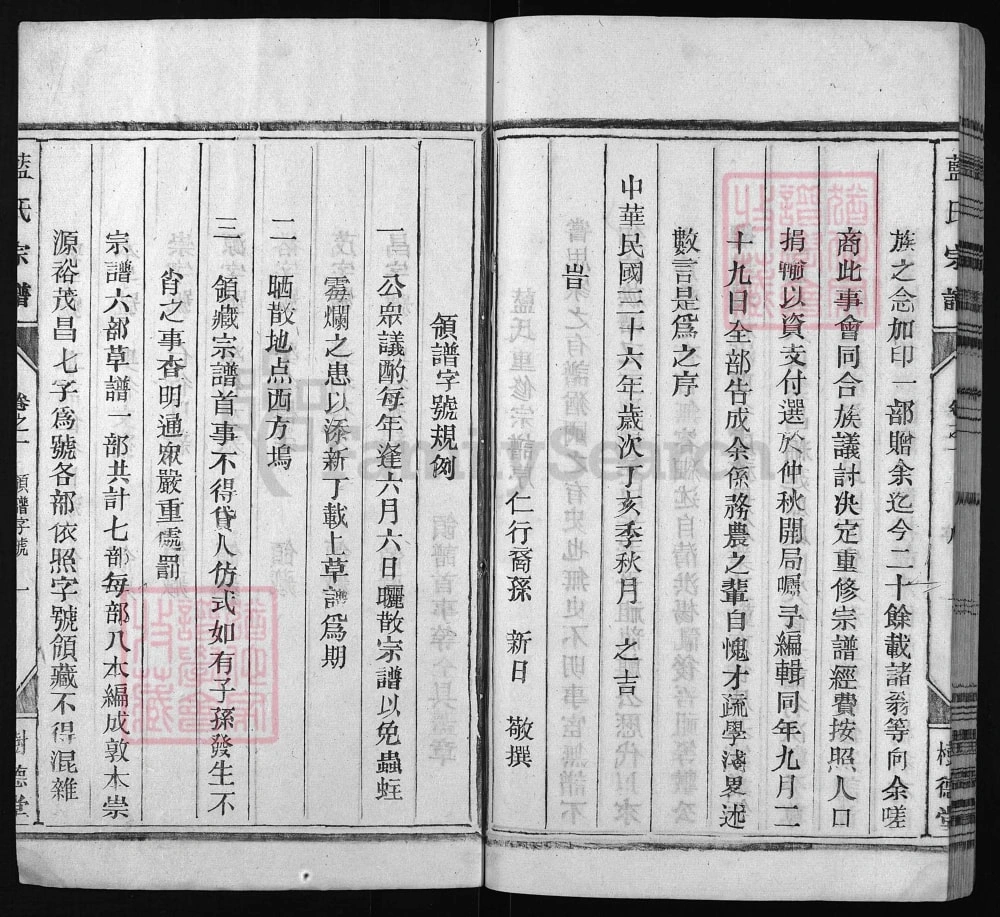 藍氏宗譜
族之念加印一部贈余迄今二十餘載諸翁等向余嗟
商此事會同合族議討决定重修宗譜經費按照人口
捐輸以資支付選於仲秋開局囑予編輯同年九月二
十九日全部告成余係務農之輩自愧才疏學淺畧述
數言是爲之序
中華民國三十六年歲次丁亥季秋月 之吉
仁行裔孫 新日 敬撰
旹
領譜字號規例
一 公衆議酌每年逢六月六日曬散宗譜以免蟲蛀
霉爛之患以添新丁載上草譜爲期
二 晒散地点西方塢
三 領藏宗譜首事不得貸人仿式如有子孫發生不
肖之事查明通衆嚴重處罰
宗譜六部草譜一部共計七部每部八本編成敦本崇
源裕茂昌七字爲號各部依照字號領藏不得混雜
藍氏宗譜 卷之一 領譜字號 一 樹德堂
FamilySearch